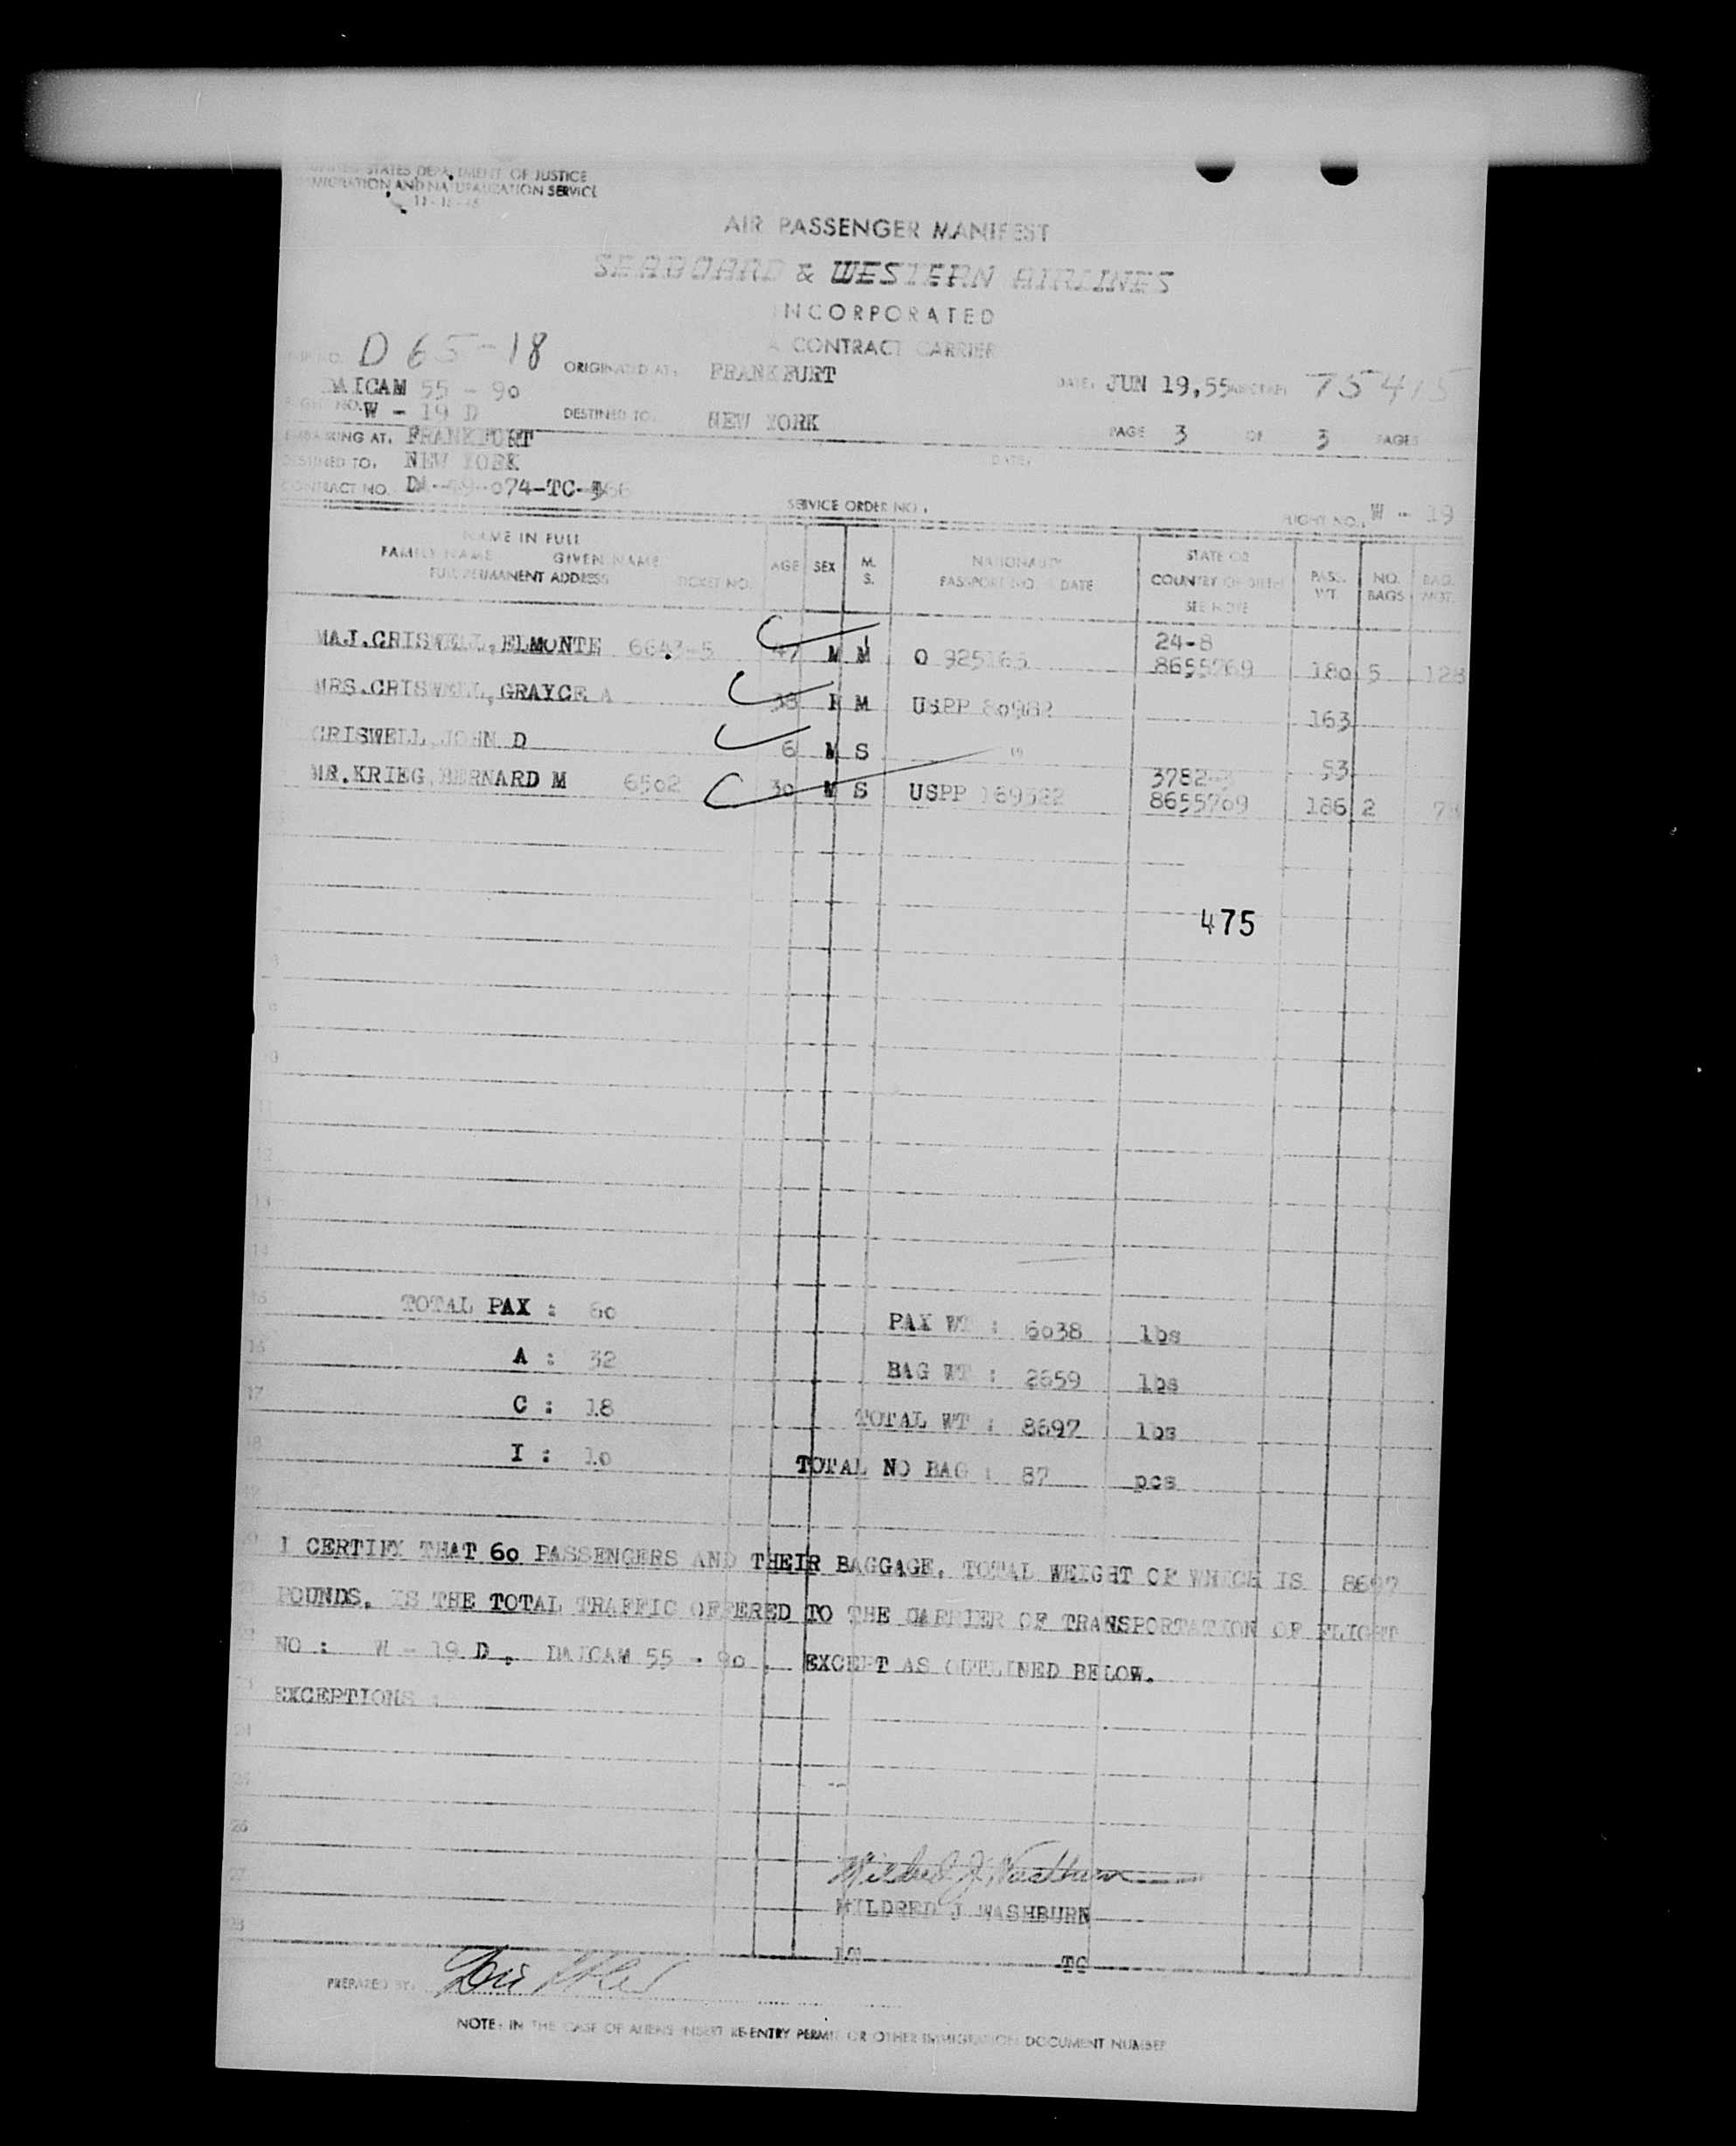 UNITED STATES DEPARTMENT OF JUSTICE
IMMIGRATION AND NATURALIZATION SERVICE
AIR PASSENGER MANIFEST
SEABOARD & WESTERN AIRLINES
INCORPORATED
A CONTRACT CARRIER
D 65-18 ORIGINATED AT: FRANKFURT DATE: JUN 19,55 75415
DAICAM 55 - 90
FLIGHT NO. W - 19 D DESTINED TO. NEW YORK PAGE 3 OF 3 PAGES
EMBARKING AT. FRANKFURT
DESTINED TO. NEW YORK DATE:
CONTRACT NO. SERVICE ORDER NO. FLIGHT NO. W - 19
NAME IN FULL
FAMILY NAME GIVEN NAME
FULL PERMANENT ADDRESS TICKET NO. AGE SEX M. S. NATIONALITY PASSPORT NO. & DATE STATE OR COUNTRY OF BIRTH SEE NOTE PASS. WT. NO. BAGS BAG. WGT.
MAJ.CRISWELL,ELMONTE 6643-5 47 M M O 925165 24-8 8655769 180 5 128
MRS.CRISWELL,GRAYCE A 38 F M USPP 80982 163
CRISWELL,JOHN D 6 M S " 53
MR.KRIEG,BERNARD M 6502 30 M S USPP 169522 3782 8655709 186 2
475
TOTAL PAX : 60 PAX WT : 6038 lbs
A : 32 BAG WT : 2659 lbs
C : 18 TOTAL WT : 8697 lbs
I : 10 TOTAL NO BAG : 87 pcs
I CERTIFY THAT 60 PASSENGERS AND THEIR BAGGAGE, TOTAL WEIGHT OF WHICH IS 8697
POUNDS, IS THE TOTAL TRAFFIC OFFERED TO THE CARRIER OF TRANSPORTATION OF FLIGHT
NO : W - 19 D , DAICAM 55 - 90 , EXCEPT AS OUTLINED BELOW.
EXCEPTIONS :
Mildred J. Washburn
MILDRED J WASHBURN
TC
PREPARED BY:
NOTE: IN THE CASE OF ALIENS INSERT RE-ENTRY PERMIT OR OTHER IMMIGRATION DOCUMENT NUMBER